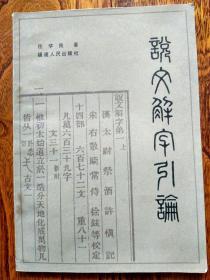 任学良 著
福建人民出版社
說文解字引論
說文解字第一 上
漢太尉祭酒許慎記
宋右散騎常侍徐鉉等校定
十四部 六百七十二文 重八十一
凡萬六百三十九字
文三十一 新附
一 惟初太始道立於一造分天地化成萬物凡